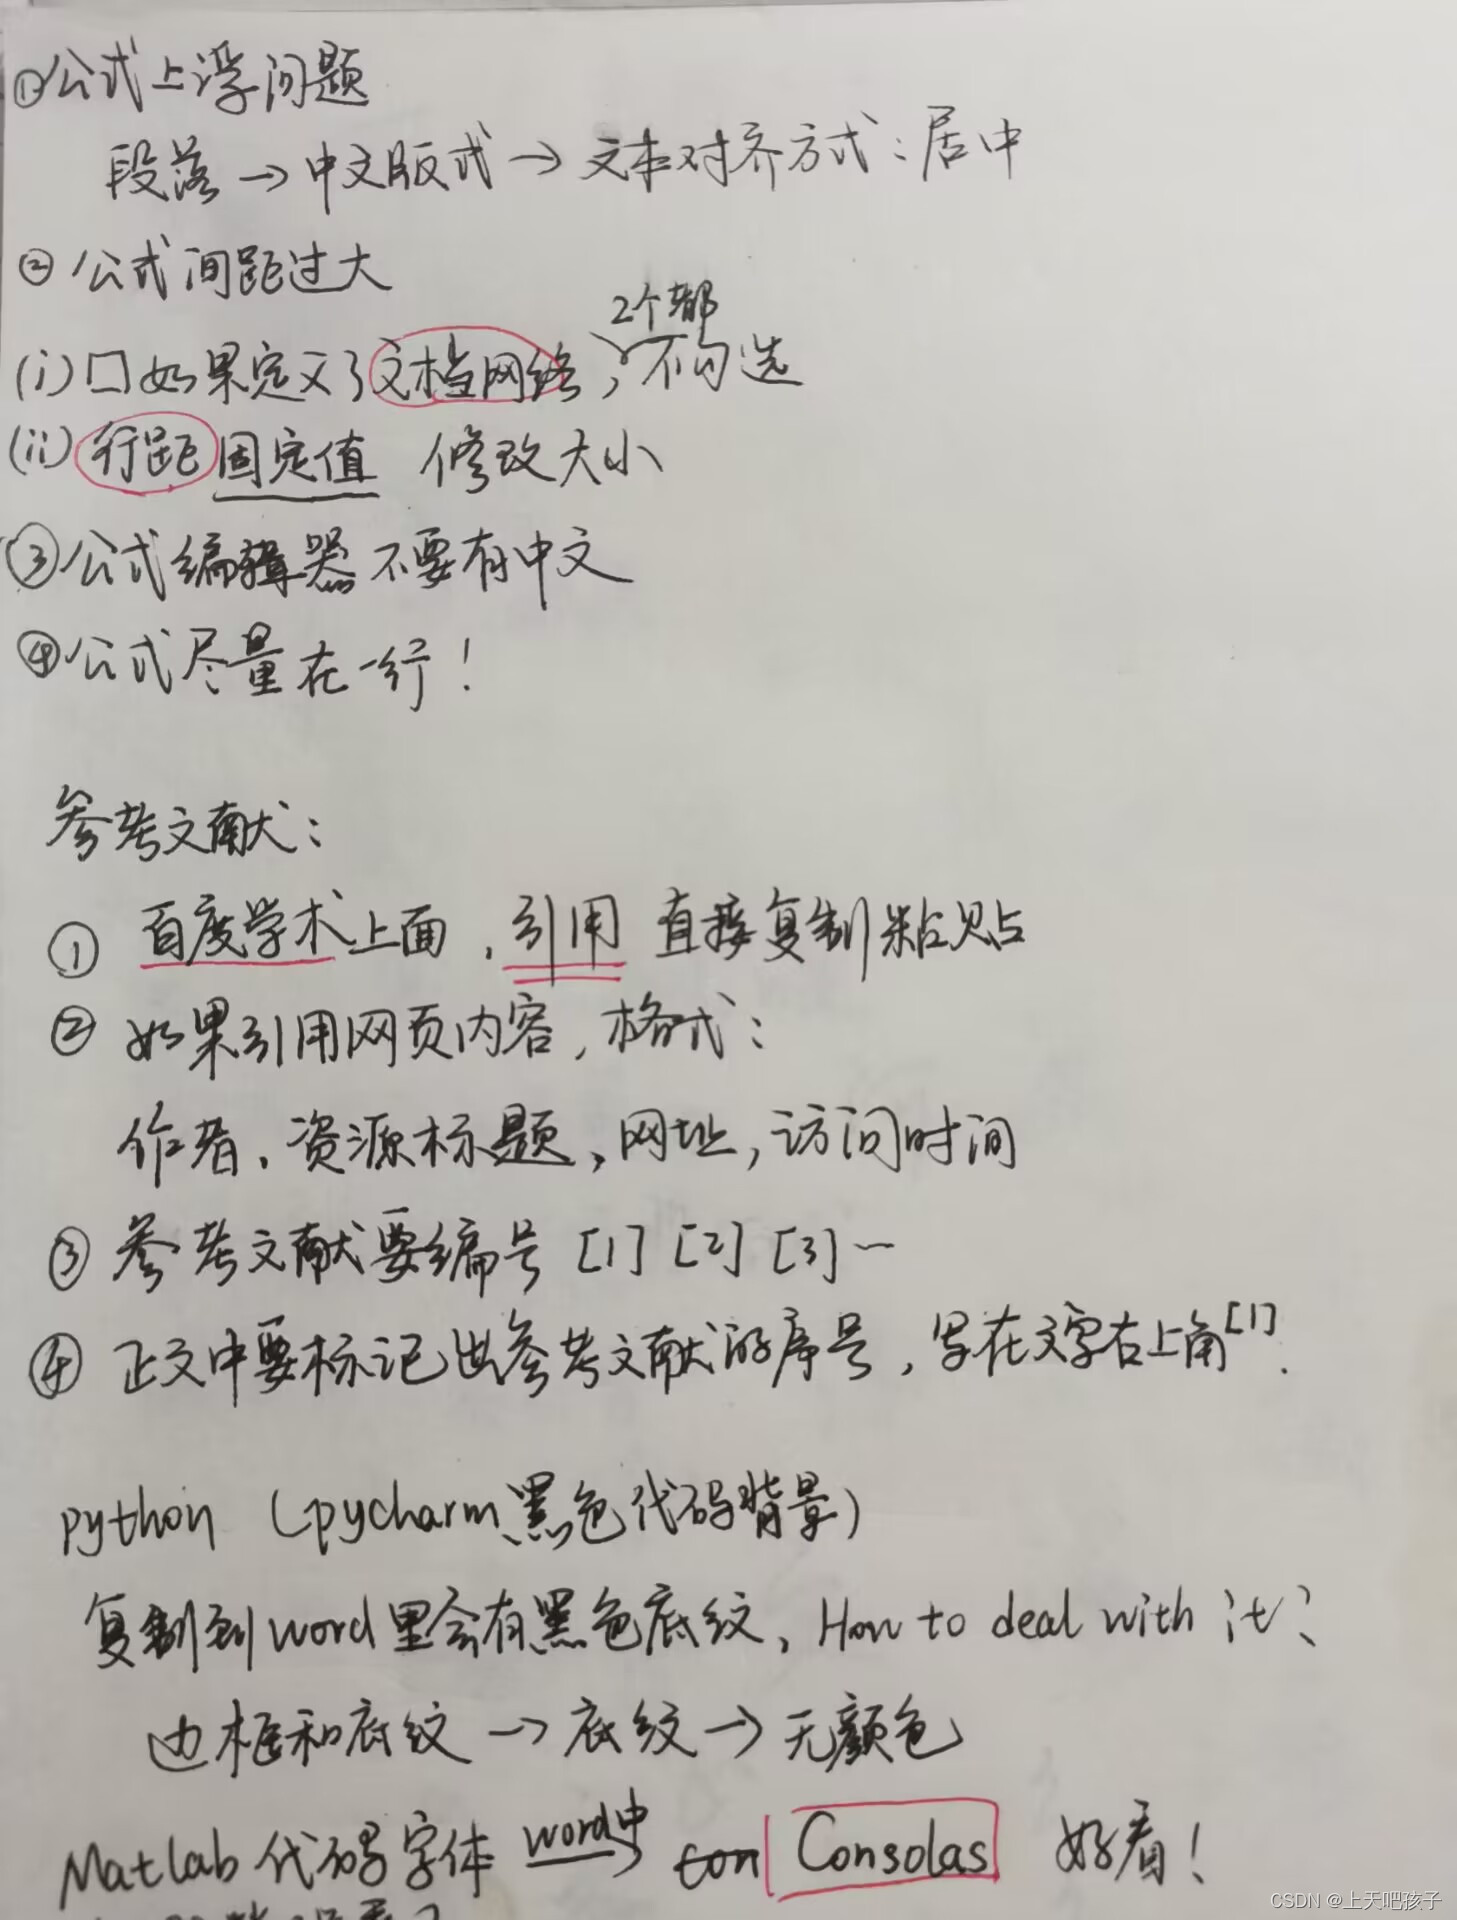 ①公式上浮问题
段落→中文版式→文本对齐方式:居中
②公式间距过大
2个都
(i)口如果定义了文档网络,不勾选
(ii)行距固定值 修改大小
③公式编辑器不要有中文
④公式尽量在一行!
参考文献:
① 百度学术上面,引用 直接复制粘贴
② 如果引用网页内容,格式:
作者,资源标题,网址,访问时间
③ 参考文献要编号 [1] [2] [3] …
④ 正文中要标记出参考文献的序号,写在文字右上角[1].
python (pycharm黑色代码背景)
复制到word里会有黑色底纹, How to deal with it?
边框和底纹→底纹→无颜色
word中
Matlab 代码字体 → con Consolas 好看!
CSDN @上天吧孩子